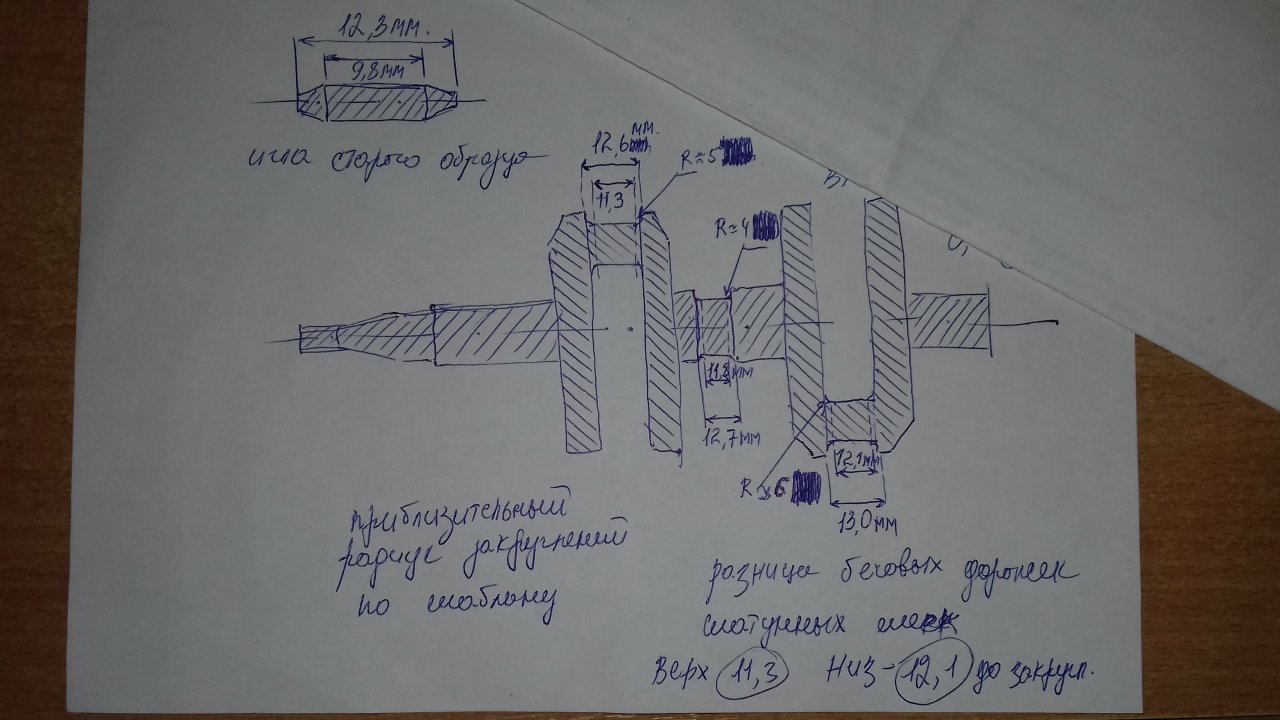 12,3мм.
9,8мм
игла старого образца
12,6 мм.
11,3
R≈5
R≈4
11,8мм
12,7мм
R≈6
12,1мм
13,0мм
приблизительный
радиус закруглений
по шаблону
разница беговых дорожек
шатунных шеек
Верх 11,3 Низ-12,1 до закругл.